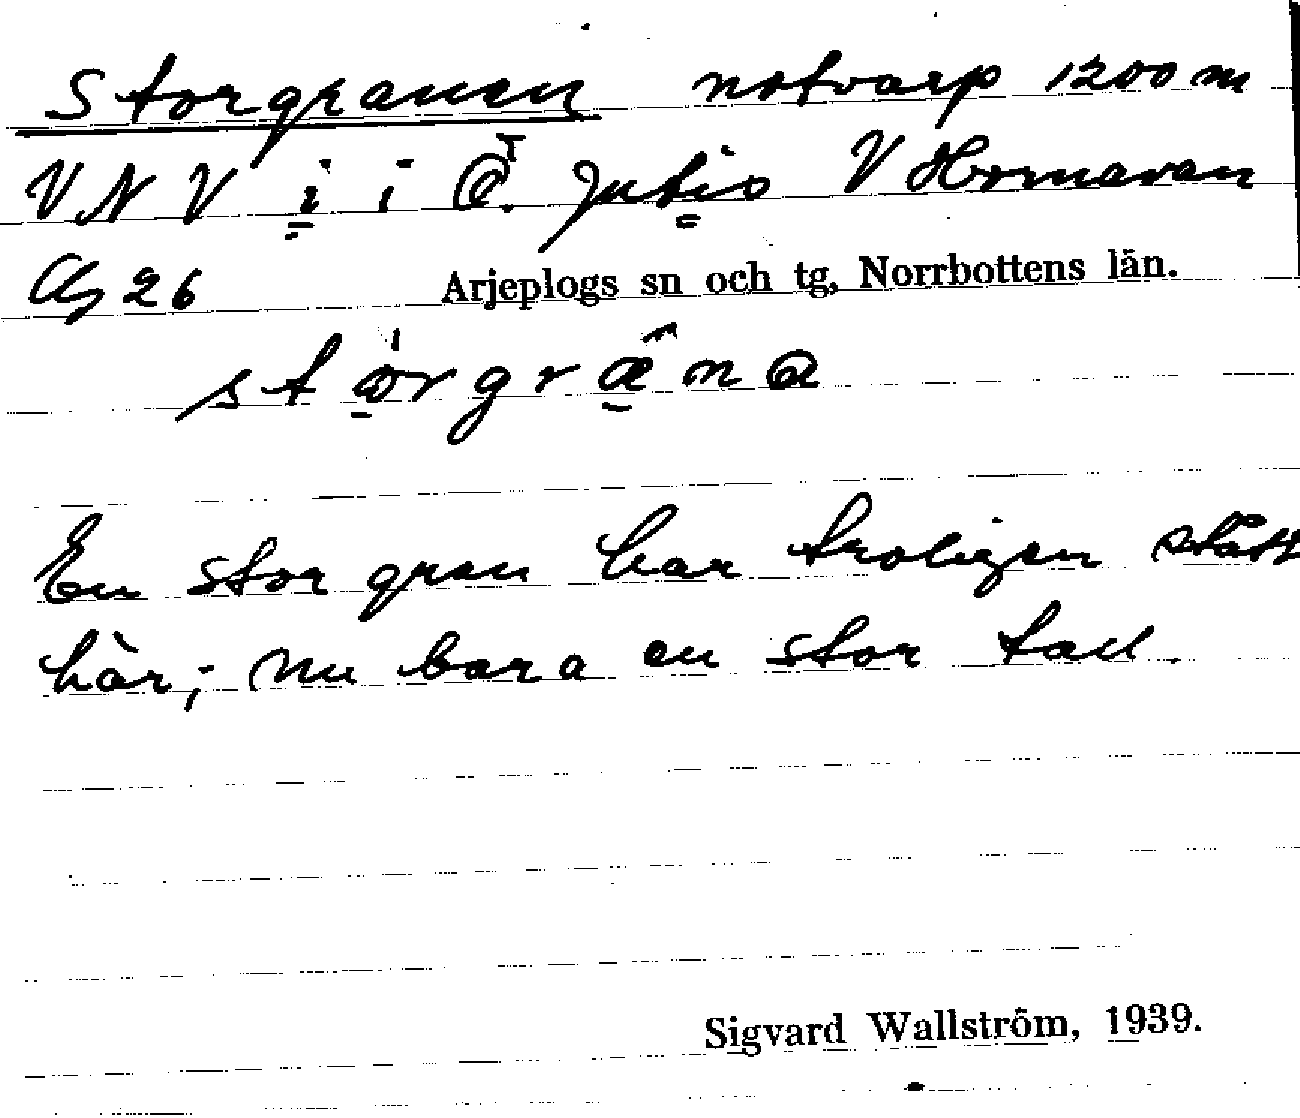 Storgranen notvarp 1200 m
V N V i i Jutis V Hornavan
26 Arjeplogs sn och tg, Norrbottens län.
En stor gran har troligen stått
här; nu bara en stor tall.
Sigvard Wallström, 1939.